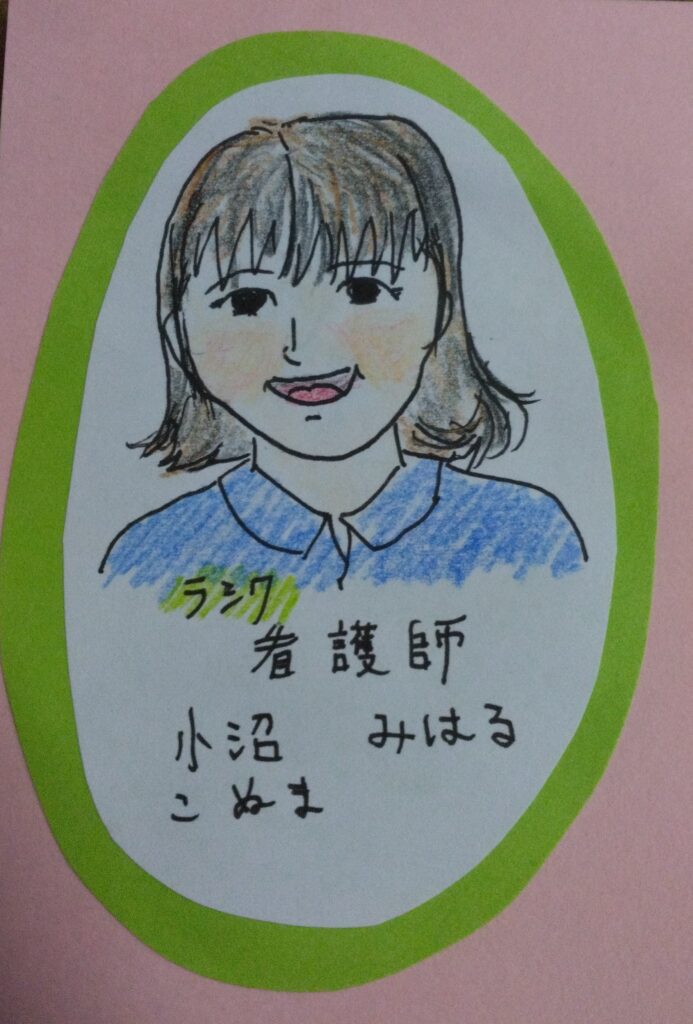 ランク
看護師
小沼 みはる
こぬま